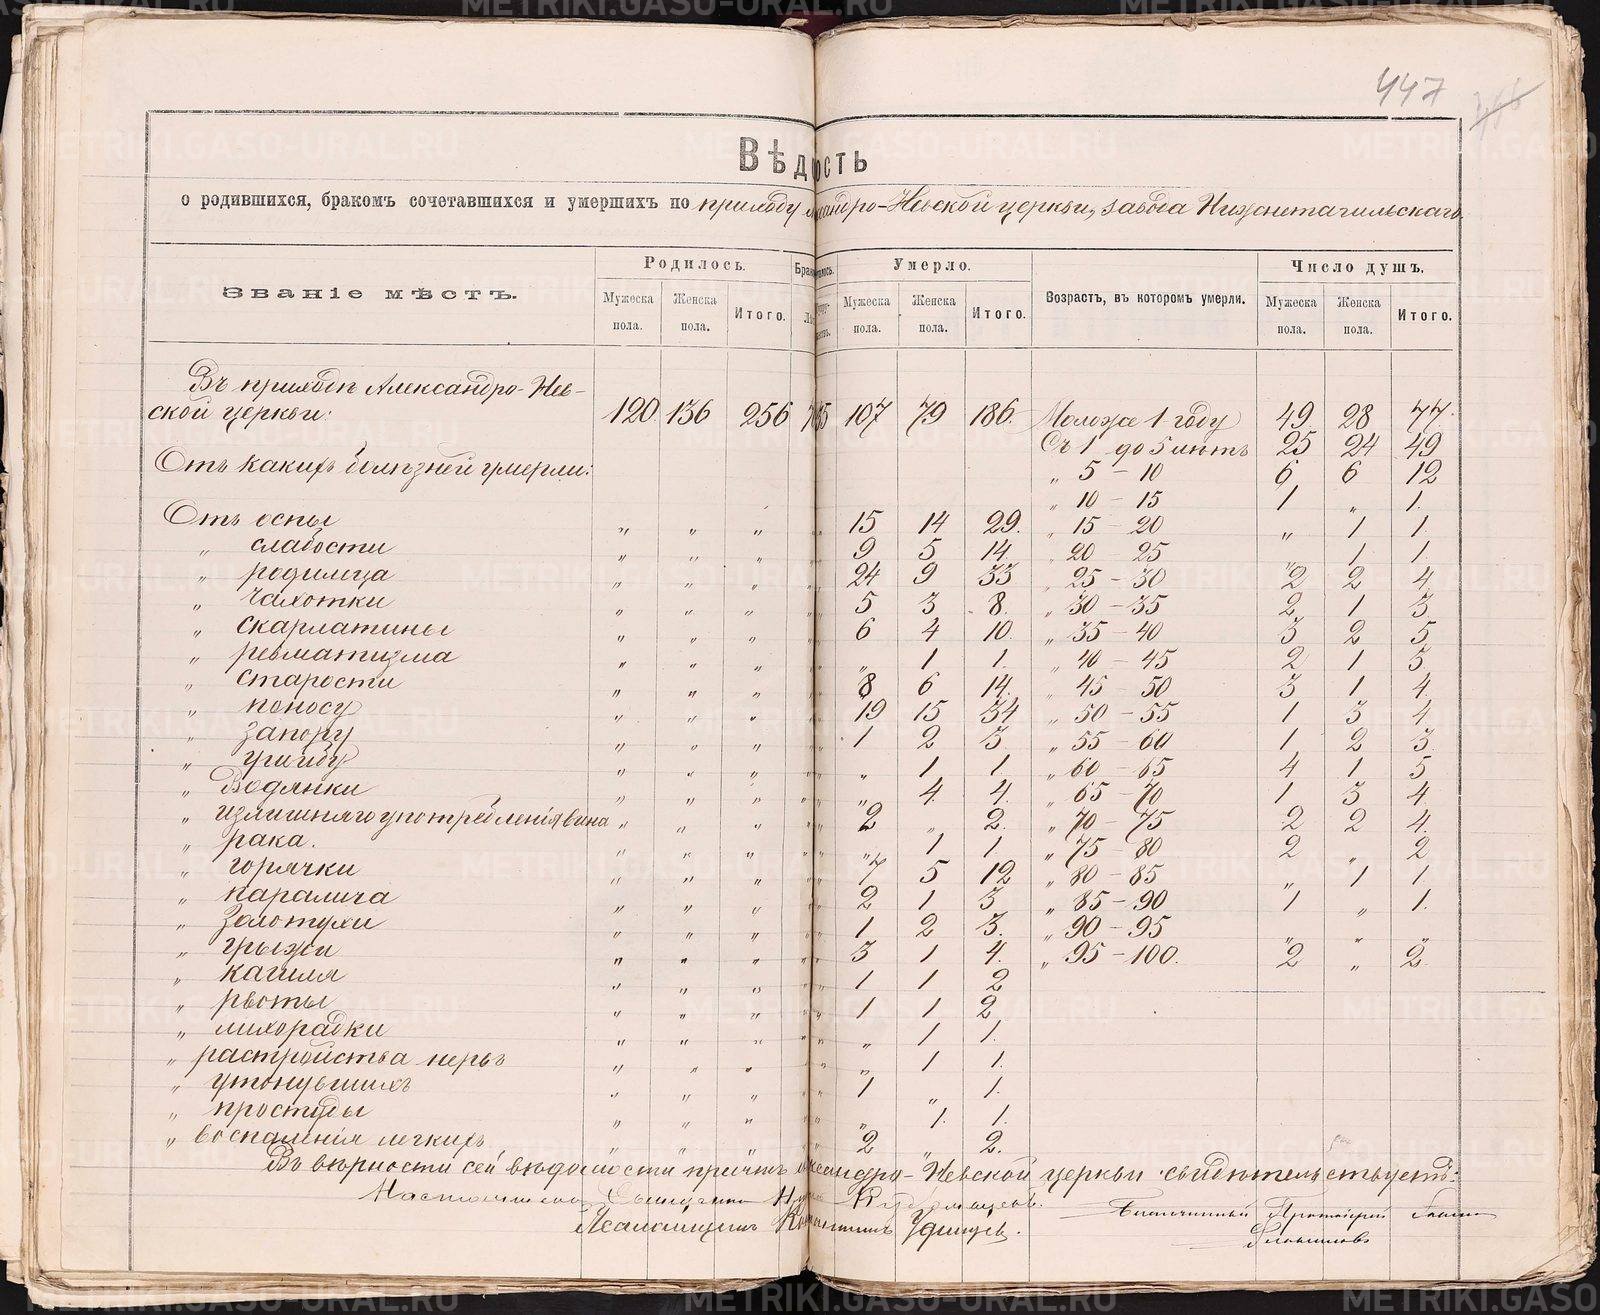 447
Вѣдость
о родившихся, бракомъ сочетавшихся и умершихъ по приходу андро-Невской церкви, завода Нижнетагильскаго.
Званіе мѣстъ. Родилось. Умерло. Возрастъ, въ которомъ умерли. Число душъ.
Мужеска пола. Женска пола. Итого. Мужеска пола. Женска пола. Итого. Мужеска пола. Женска пола. Итого.
Въ приходѣ Александро-Нев-
ской церкви: 120 136 256 107 79 186. Моложе 1 году 49 28 77.
Съ 1 до 5 лѣтъ 25 24 49
Отъ какихъ болѣзней умерли: „ 5 – 10 6 6 12
„ 10 – 15 1 „ 1.
Отъ оспы „ „ „ 15 14 29. „ 15 – 20 „ 1 1
„ слабости „ „ „ 9 5 14. „ 20 – 25 „ 1 1
„ родимца „ „ „ 24 9 33 „ 25 – 30 2 2 4
„ чахотки „ „ „ 5 3 8. „ 30 – 35 2 1 3
„ скарлатины „ „ „ 6 4 10. „ 35 – 40 3 2 5
„ ревматизма „ „ „ „ 1 1. „ 40 – 45 2 1 3
„ старости „ „ „ 8 6 14. „ 45 – 50 3 1 4
„ поносу „ „ „ 19 15 34 „ 50 – 55 1 3 4
„ запору „ „ „ 1 2 3 „ 55 – 60 1 2 3
„ „ „ „ „ 1 1 „ 60 – 65 4 1 5
„ Водянки „ „ „ „ 4 4 „ 65 – 70 1 3 4
„ излишняго употребленія вина „ „ „ 2 „ 2. „ 70 – 75 2 2 4.
„ рака. „ „ „ „ 1 1 „ 75 – 80 2 „ 2
„ горячки „ „ „ 7 5 12 „ 80 – 85 „ 1 1
„ паралича „ „ „ 2 1 3 „ 85 – 90 1 „ 1.
„ золотухи „ „ „ 1 2 3. „ 90 – 95 „ „ „
„ грыжи „ „ „ 3 1 4. „ 95 – 100. 2 „ 2
„ кашля „ „ „ 1 1 2
„ рвоты „ „ „ 1 1 2
„ лихорадки „ „ „ „ 1 1.
„ растройства нервъ „ „ „ „ 1 1.
„ утонувшихъ „ „ „ 1 „ 1.
„ простуды „ „ „ „ 1. 1.
„ воспаленія легкихъ „ „ „ 2 „ 2.
Въ вѣрности сей вѣдомости причтъ андро-Невской церкви свидѣтельствуетъ:
Священникъ
Псаломщикъ Удинцевъ.
Благочинный Протоіерей
METRIKI.GASO-URAL.RU